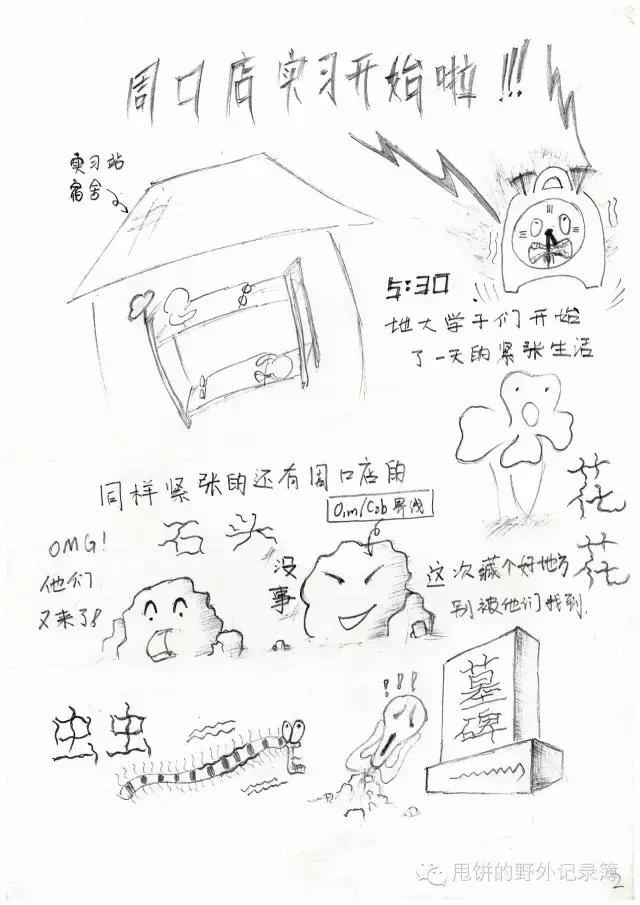 周口店实习开始啦!!!
实习站
宿舍
5:30
地大学子们开始
了一天的紧张生活
同样紧张的还有周口店的
石头
O₁m/C₂b界线
花花
OMG!
他们
又来了!
没事
这次藏个好地方
别被他们找到.
虫虫
!!!
墓碑
甩饼的野外记录簿
2